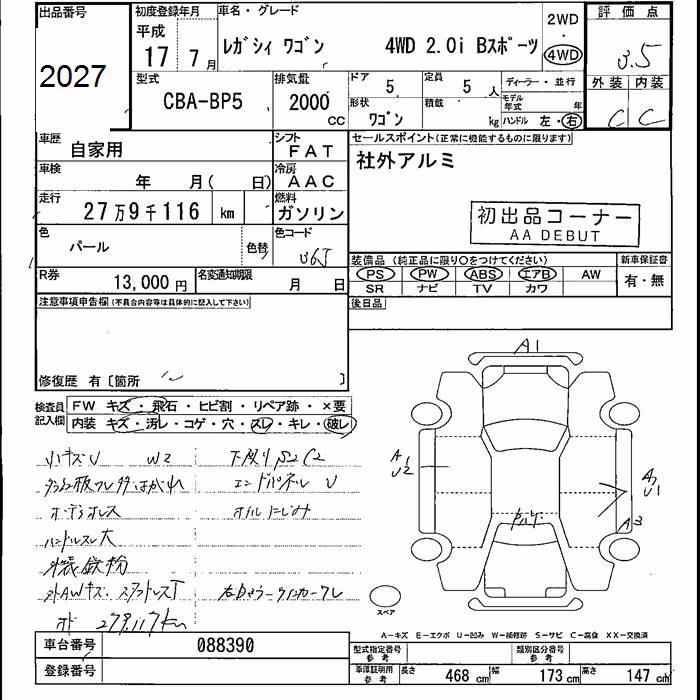 出品番号
2027
初度登録年月
平成
17 7月
車名・グレード
レガシィ ワゴン 4WD 2.0i Bスポーツ
2WD
・
4WD
評価点
3.5
外装 内装
C C
型式
CBA-BP5
排気量
2000 cc
ドア 5
定員 5 人
形状 ワゴン
積載 kg
ディーラー・並行
モデル年式 年
ハンドル 左・右
車歴
自家用
シフト
FAT
車検
年 月( 日)
冷房
AAC
走行
27万9千116 km
燃料
ガソリン
色
パール
色替
色コード
36J
R券
13,000円
名変通知期限
月 日
セールスポイント(正常に機能するものに限ります)
社外アルミ
初出品コーナー
AA DEBUT
装備品 (純正品に限り○をつけてください)
PS PW ABS エアB AW
SR ナビ TV カワ
新車保証書
有・無
後日品
注意事項申告欄(不具合内容等は具体的に記入して下さい)
修復歴 有〔箇所 〕
検査員記入欄
FW キズ・飛石・ヒビ割・リペア跡・×要
内装 キズ・汚レ・コゲ・穴・スレ・キレ・破レ
小キズU W2
下廻りS2C2
エンドパネル U
オイルにじみ
ハンドルスレ大
外装鉄粉
外AWキズ
A1
A1
U2
A1
U1
A3
スペア
A―キズ E―エクボ U―凹み W―補修跡 S―サビ C―腐食 XX―交換済
車台番号 088390
登録番号
型式指定番号 参考
類別区分番号 参考
車庫証明用 参考 長さ 468 cm 幅 173 cm 高さ 147 cm